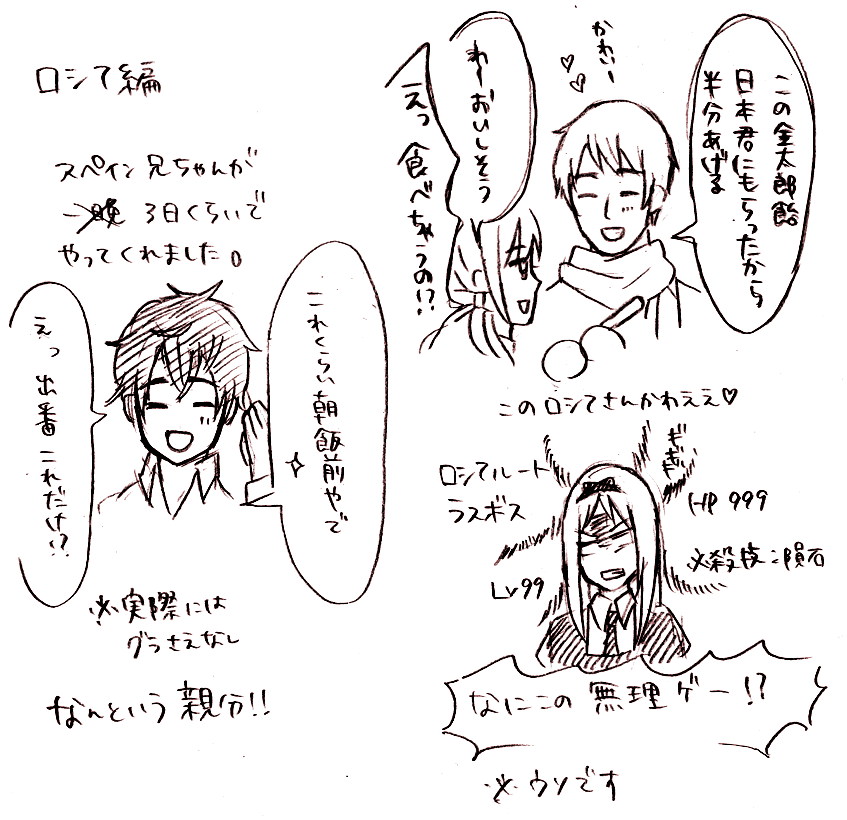 ロシて編
スペイン兄ちゃんが
一晩 3日くらいで
やってくれました。
これくらい朝飯前やで
えっ 出番これだけ!?
※実際には
グラさえなし
なんという親分!!
この金太郎飴
日本君にもらったから
半分あげる
かわいー
わーおいしそう
えっ 食べちゃうの!?
このロシてさんかわええ♡
ぎぎぎ
ロシてルート
ラスボス
HP 999
Lv99
必殺技:隕石
なにこの 無理ゲー!?
※ウソです